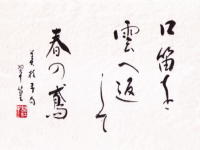 口笛を
雲へ返して
春の鳶